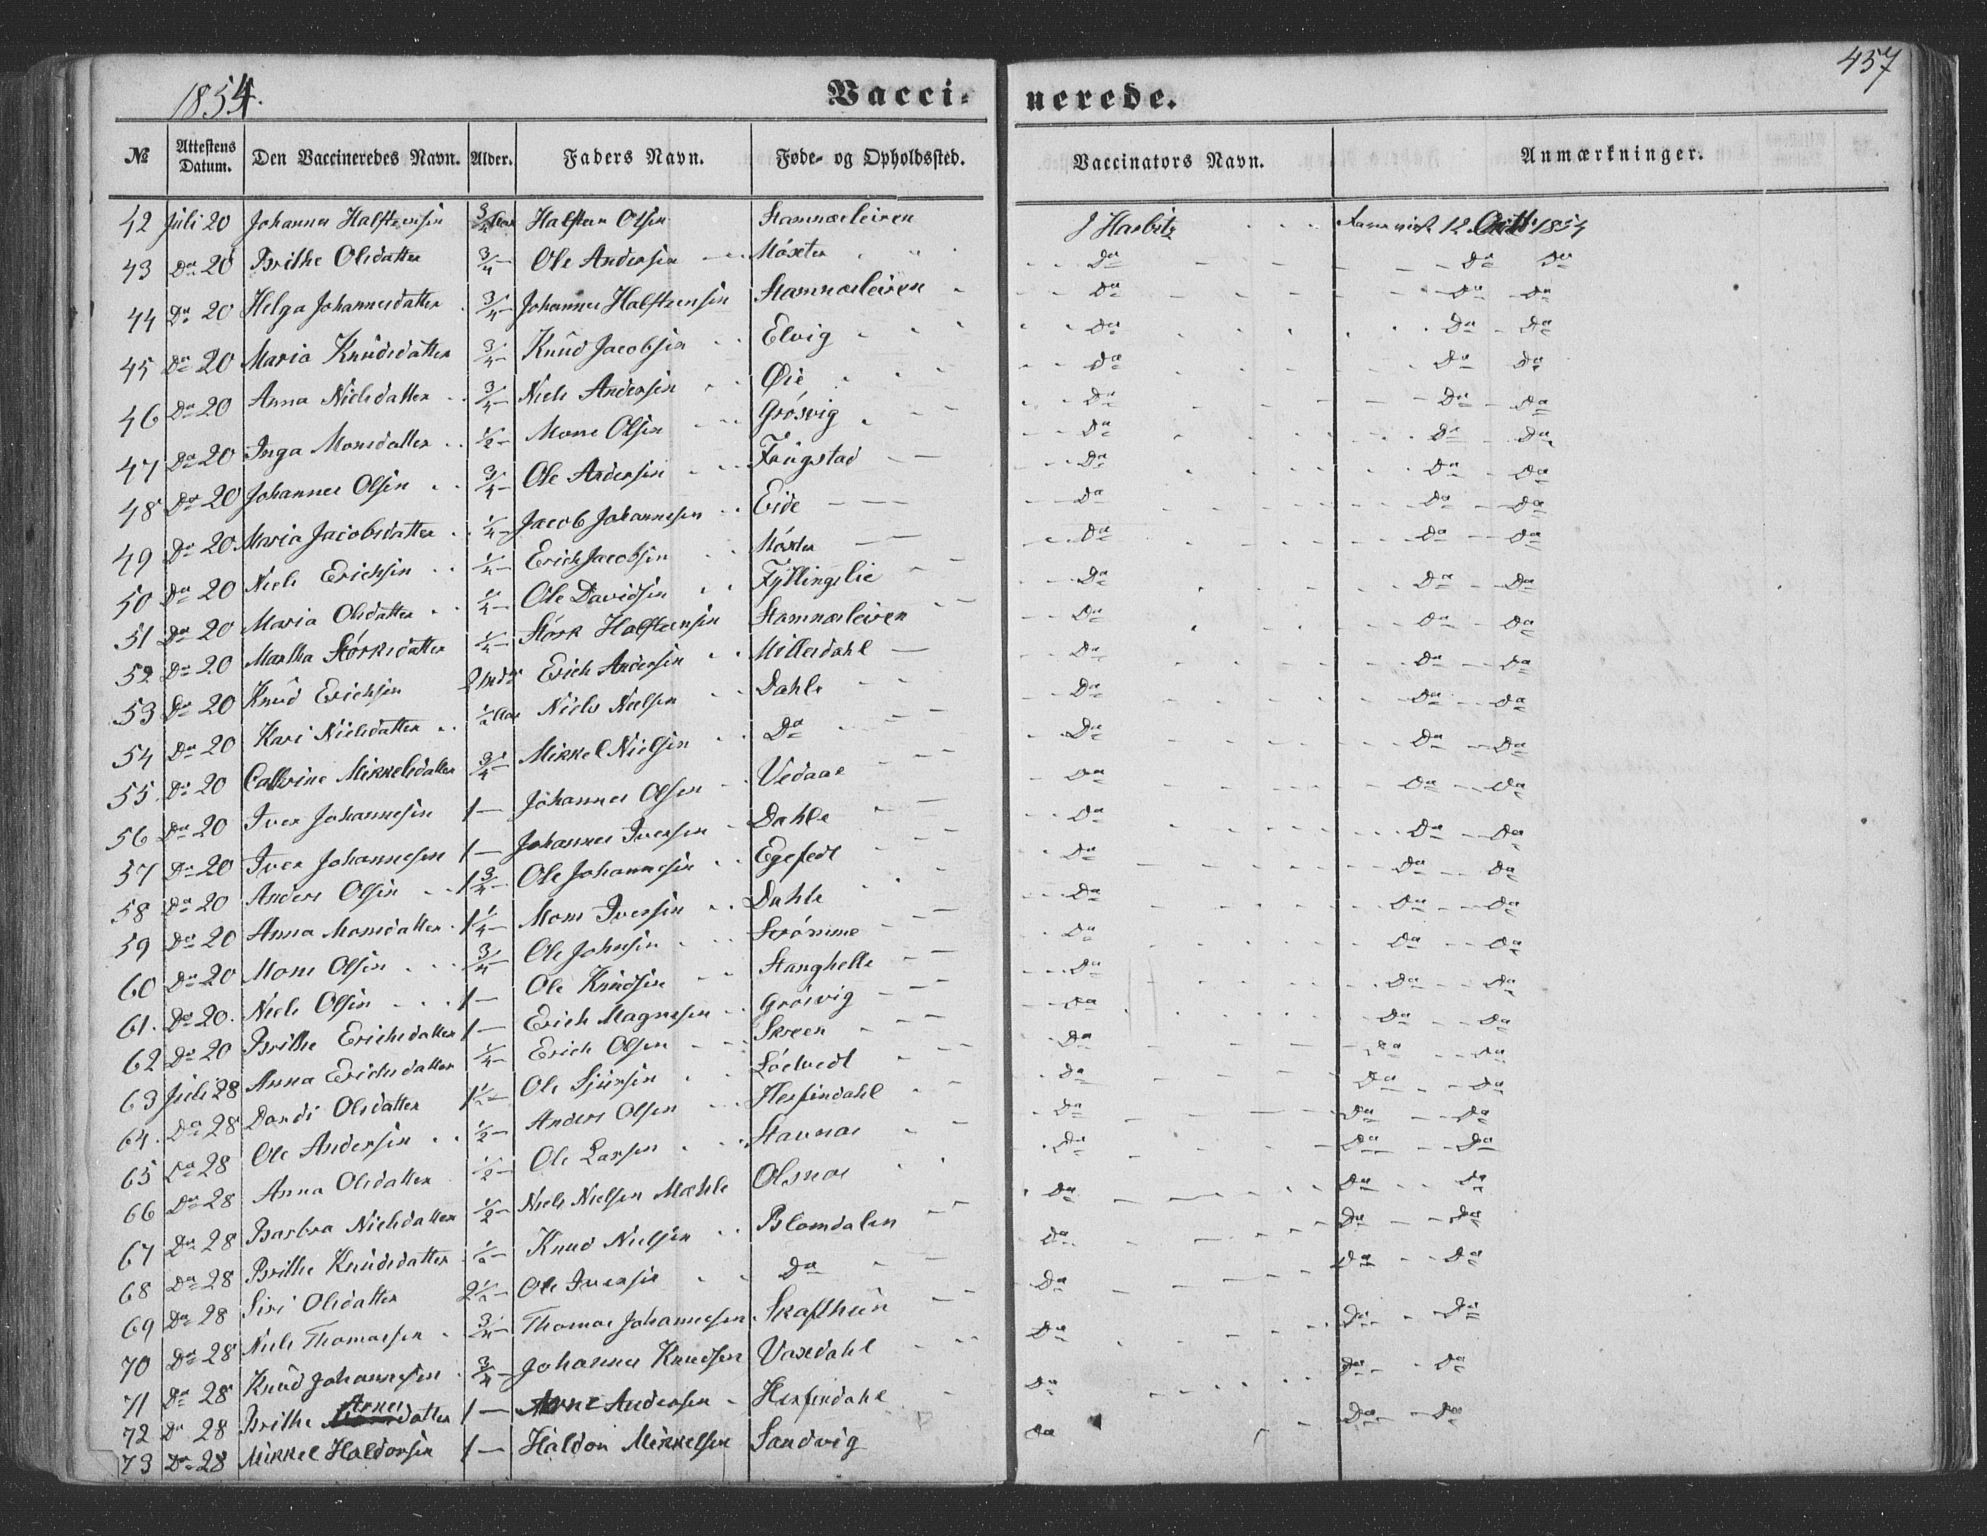 457
1854.
Vaccinerede.
№ Attestens Datum. Den Vaccineredes Navn. Alder. Faders Navn. Føde- og Opholdssted. Vaccinators Navn. Anmærkninger.
42 Juli 20 Johannes Halfteensen 3/4 Aar Halfteen Olsen Stamnæsleiren J Harbitz 12 1854
43 Do 20 Brithe Olsdatter 3/4 — Ole Andersen Moxter Do Do Do
44 Do 20 Helga Johannesdatter 3/4 — Johannes Halfteensen Stamnæsleiren Do Do Do
45 Do 20 Maria Knudsdatter 3/4 — Knud Jacobsen Elvig Do Do Do
46 Do 20 Anna Nielsdatter 3/4 — Niels Andersen Øie Do Do Do
47 Do 20 Inga Monsdatter 1/2 — Mons Olsen Grósvig Do Do Do
48 Do 20 Johannes Olsen 3/4 — Ole Andersen Do Do Do
49 Do 20 Maria Jacobsdatter 1/4 — Jacob Johannesen Eide Do Do Do
50 Do 20 Niels Erichsen 1/4 — Erich Jacobsen Moxter Do Do Do
51 Do 20 Maria Olsdatter 1/4 — Ole Davidsen Fyllingslie Do Do Do
52 Do 20 Martha Størksdatter 1/4 — Størk Halfteensen Stamnæsleiren Do Do Do
53 Do 20 Knud Erichsen 2 Mdr Erich Andersen Millesdahl Do Do Do
54 Do 20 Kari Nielsdatter 1/2 Aar Niels Nielsen Dahle Do Do Do
55 Do 20 Cathrine Mikkelsdatter 3/4 — Mikkel Nielsen Do Do Do Do
56 Do 20 Iver Johannesen 1 — Johannes Olsen Vedaae Do Do Do
57 Do 20 Iver Johannesen 1 — Johannes Iversen Dahle Do Do Do
58 Do 20 Anders Olsen 1 3/4 — Ole Johannesen Do Do Do
59 Do 20 Anna Monsdatter 1 1/4 — Mons Iversen Dahle Do Do Do
60 Do 20 Mons Olsen 3/4 — Ole Johnsen Strømme Do Do Do
61. Do 20. Niels Olsen 1 — Ole Knudsen Stanghelle Do Do Do
62 Do 20 Brithe Erichsdatter 1 — Erich Magnesen Grósvig Do Do Do
63 Juli 28 Anna Erichsdatter 1/4 — Erich Olsen Skreen Do Do Do
64. Do 28 Dordi Olsdatter 1 1/2 — Ole Sjursen Do Do Do
65 Do 28 Ole Andersen 1/2 — Anders Olsen Herfindahl Do Do Do
66 Do 28 Anna Olsdatter 1/2 — Ole Larsen Stavnæs Do Do Do
67 Do 28 Barbra Nielsdatter 1/2 — Niels Nielsen Mæhle Olsnæs Do Do Do
68 Do 28 Brithe Knudsdatter 1/2 — Knud Nielsen Blomdalen Do Do Do
69 Do 28 Siri Olsdatter 2 1/2 — Ole Iversen Do Do Do Do
70 Do 28 Niels Thomassen 3/4 — Thomas Johannesen Skafthun Do Do Do
71 Do 28 Knud Johannesen 3/4 — Johannes Knudsen Vaxdahl Do Do Do
72 Do 28 Brithe Arnesdatter 1 — Arne Andersen Herfindahl Do Do Do
73 Do 28 Mikkel Haldorsen 1 — Haldor Mikkelsen Sandvig Do